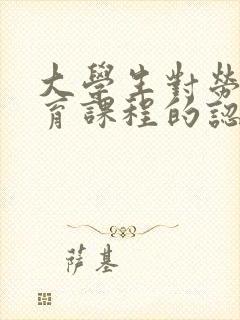 大學生對勞
育課程的認
萨基